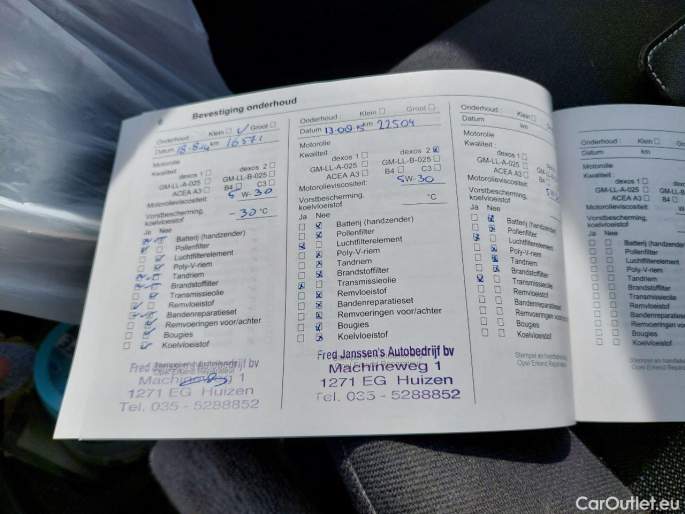 Bevestiging onderhoud
Onderhoud : Klein Groot
Datum km 16571
Motorolie
Kwaliteit : dexos 1 dexos 2
GM-LL-A-025 GM-LL-B-025
ACEA A3 B4 C3
Motorolieviscositeit: 5 W-30
Vorstbescherming,
koelvloeistof -30 °C
Ja Nee
Batterij (handzender)
Pollenfilter
Luchtfilterelement
Poly-V-riem
Tandriem
Brandstoffilter
Transmissieolie
Remvloeistof
Bandenreparatieset
Remvoeringen voor/achter
Bougies
Koelvloeistof
Machineweg 1
1271 EG Huizen
Tel. 035 - 5288852
Onderhoud : Klein Groot
Datum km 22504
Motorolie
Kwaliteit : dexos 1 dexos 2
GM-LL-A-025 GM-LL-B-025
ACEA A3 B4 C3
Motorolieviscositeit: 5W-30
Vorstbescherming,
koelvloeistof °C
Ja Nee
Batterij (handzender)
Pollenfilter
Luchtfilterelement
Poly-V-riem
Tandriem
Brandstoffilter
Transmissieolie
Remvloeistof
Bandenreparatieset
Remvoeringen voor/achter
Bougies
Koelvloeistof
Fred Janssen's Autobedrijf bv
Machineweg 1
1271 EG Huizen
Tel. 035 - 5288852
Onderhoud : Klein
Datum km
Motorolie
Kwaliteit : dexos 1
GM-LL-A-025
ACEA A3
Motorolieviscositeit:
Vorstbescherming,
koelvloeistof
Ja Nee
Batterij (handzender)
Pollenfilter
Luchtfilterelement
Poly-V-riem
Tandriem
Brandstoffilter
Transmissieolie
Remvloeistof
Bandenreparatieset
Remvoeringen
Bougies
Koelvloeistof
Onderhoud : Klein Groot
Datum km
Motorolie
Kwaliteit : dexos 1
GM-LL-A-025
ACEA A3 B4
Motorolieviscositeit:
Vorstbescherming,
koelvloeistof
Ja Nee
Batterij (handzender)
Pollenfilter
Luchtfilterelement
Poly-V-riem
Tandriem
Brandstoffilter
Transmissieolie
Remvloeistof
Bandenreparatieset
Remvoeringen
Bougies
Koelvloeistof
CarOutlet.eu